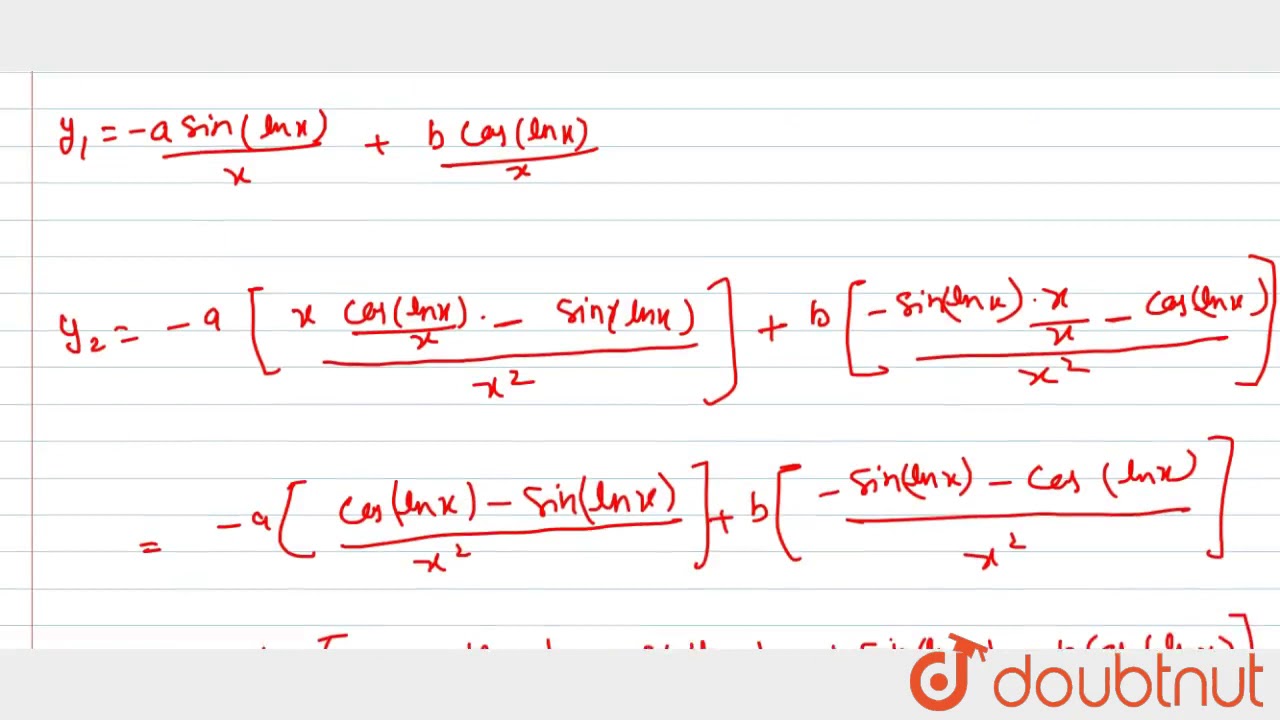 y₁ = -a sin(lnx)/x + b cos(lnx)/x
y₂ = -a [ (x cos(lnx)/x · - sin(lnx))/x² ] + b [ (-sin(lnx) · x/x - cos(lnx))/x² ]
= -a [ (cos(lnx) - sin(lnx))/x² ] + b [ (-sin(lnx) - cos(lnx))/x² ]
doubtnut